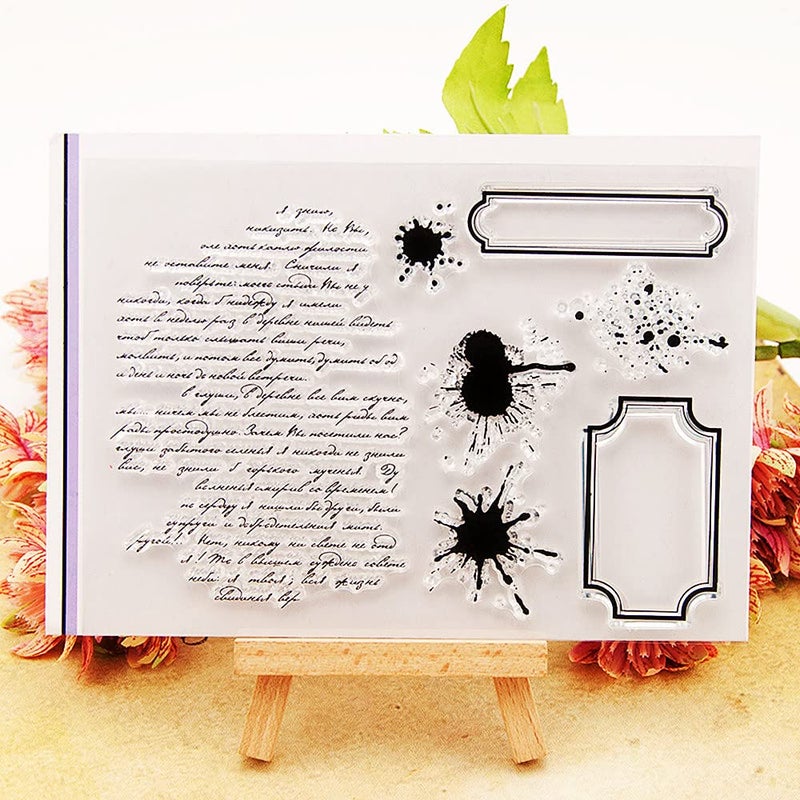 я знаю,
никизить. Но Вы,
оле хоть каплю жалости
не оставите меня. Сначили я
поверьте: моего стыда Вы не у
никогда, когда б надежду я имела
хоть в неделю раз в деревне нашей видеть
чтоб только слышать ваши речи,
молвить, и потом все думить, думить об од
и день и ночь до новой встречи.
в глуши, в деревне все вам скучно,
мы... ничем мы не блестим, хоть рады вам
рады простодушно. Зачем Вы посетили нас?
глуши забытого селенья я никогда не знали
вас, не знала б горького мученья. Ду
волненья смирив со временем!
по сердцу я нашли бы друга, были
супруги и добродетельния мить.
ругой!.. Нет, никому на свете не отд
я! То в вышнем суждено совете
неба: я твоя; вся жизнь
свиданья вер